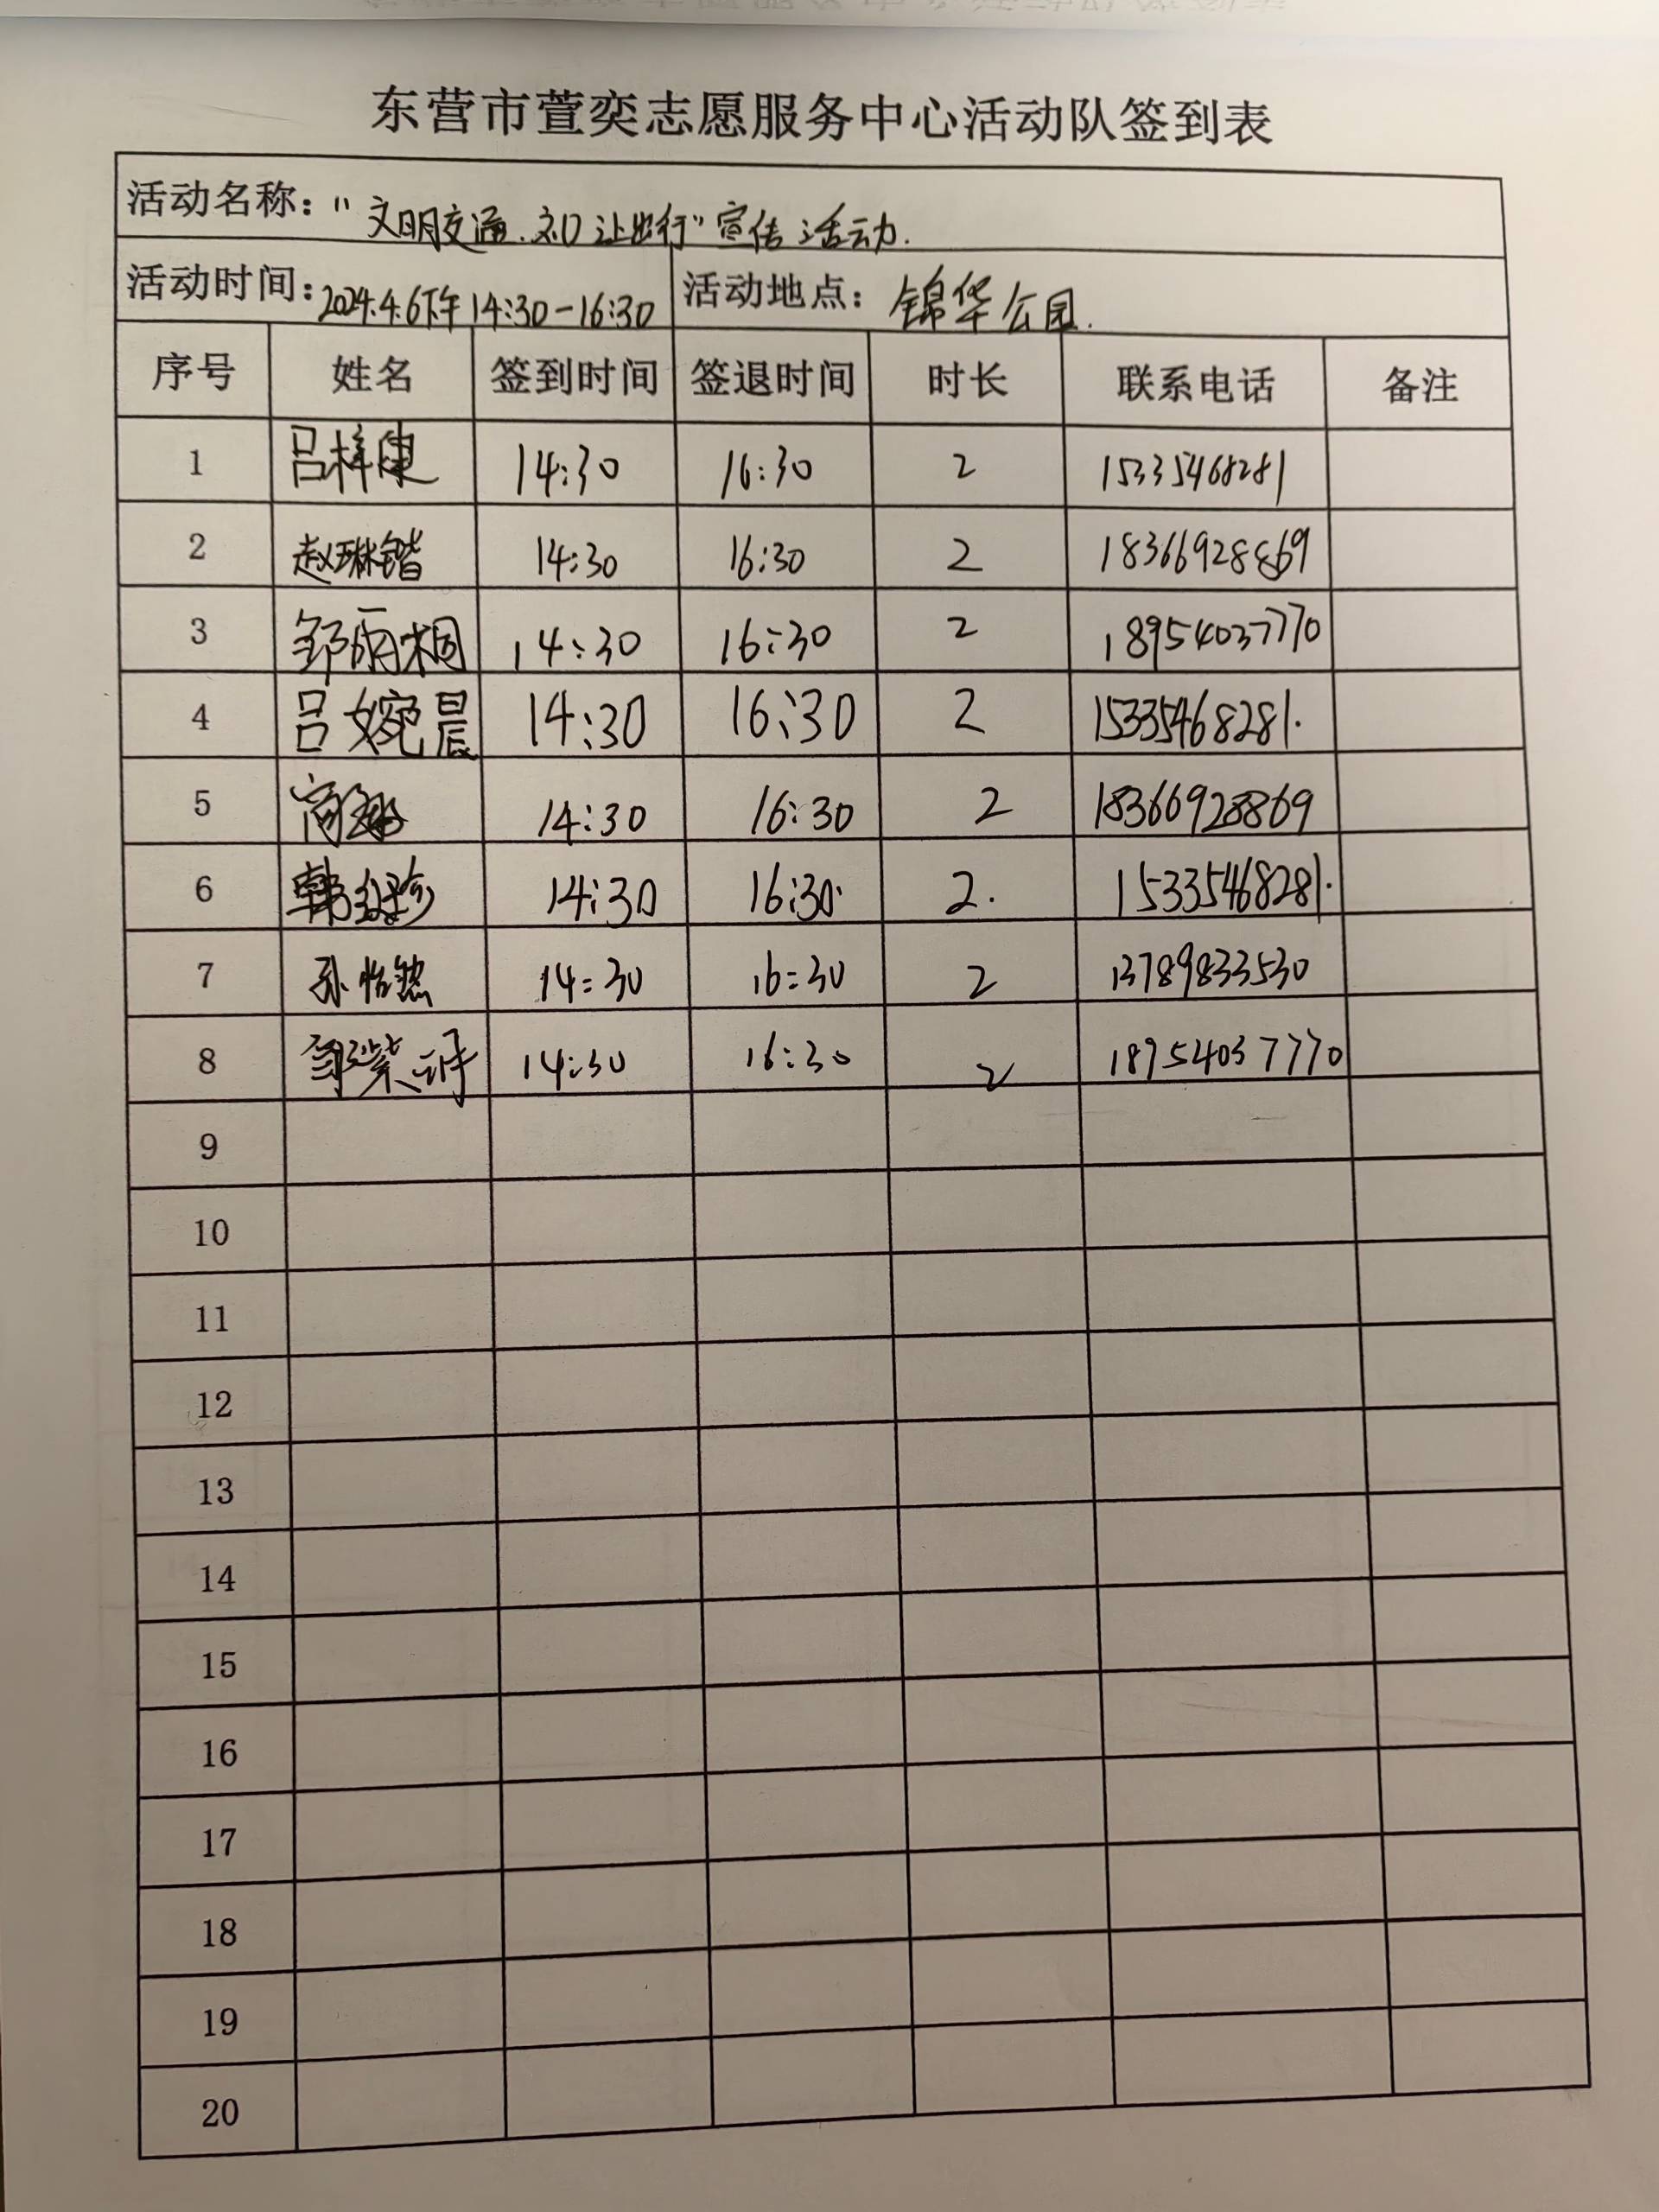 东营市萱奕志愿服务中心活动队签到表
活动名称："文明交通.礼让出行"宣传活动.
活动时间：2024.4.6下午14:30-16:30 活动地点：锦华公园.
序号 姓名 签到时间 签退时间 时长 联系电话 备注
1 吕梓康 14:30 16:30 2 15335468281
2 赵琳锴 14:30 16:30 2 18366928869
3 邹雨桐 14:30 16:30 2 18954037770
4 吕婉晨 14:30 16:30 2 15335468281.
5 14:30 16:30 2 18366928869
6 韩 珍 14:30 16:30 2. 15335468281.
7 孙怡然 14:30 16:30 2 13789833530
8 紫诗 14:30 16:30 2 18954037770
9
10
11
12
13
14
15
16
17
18
19
20